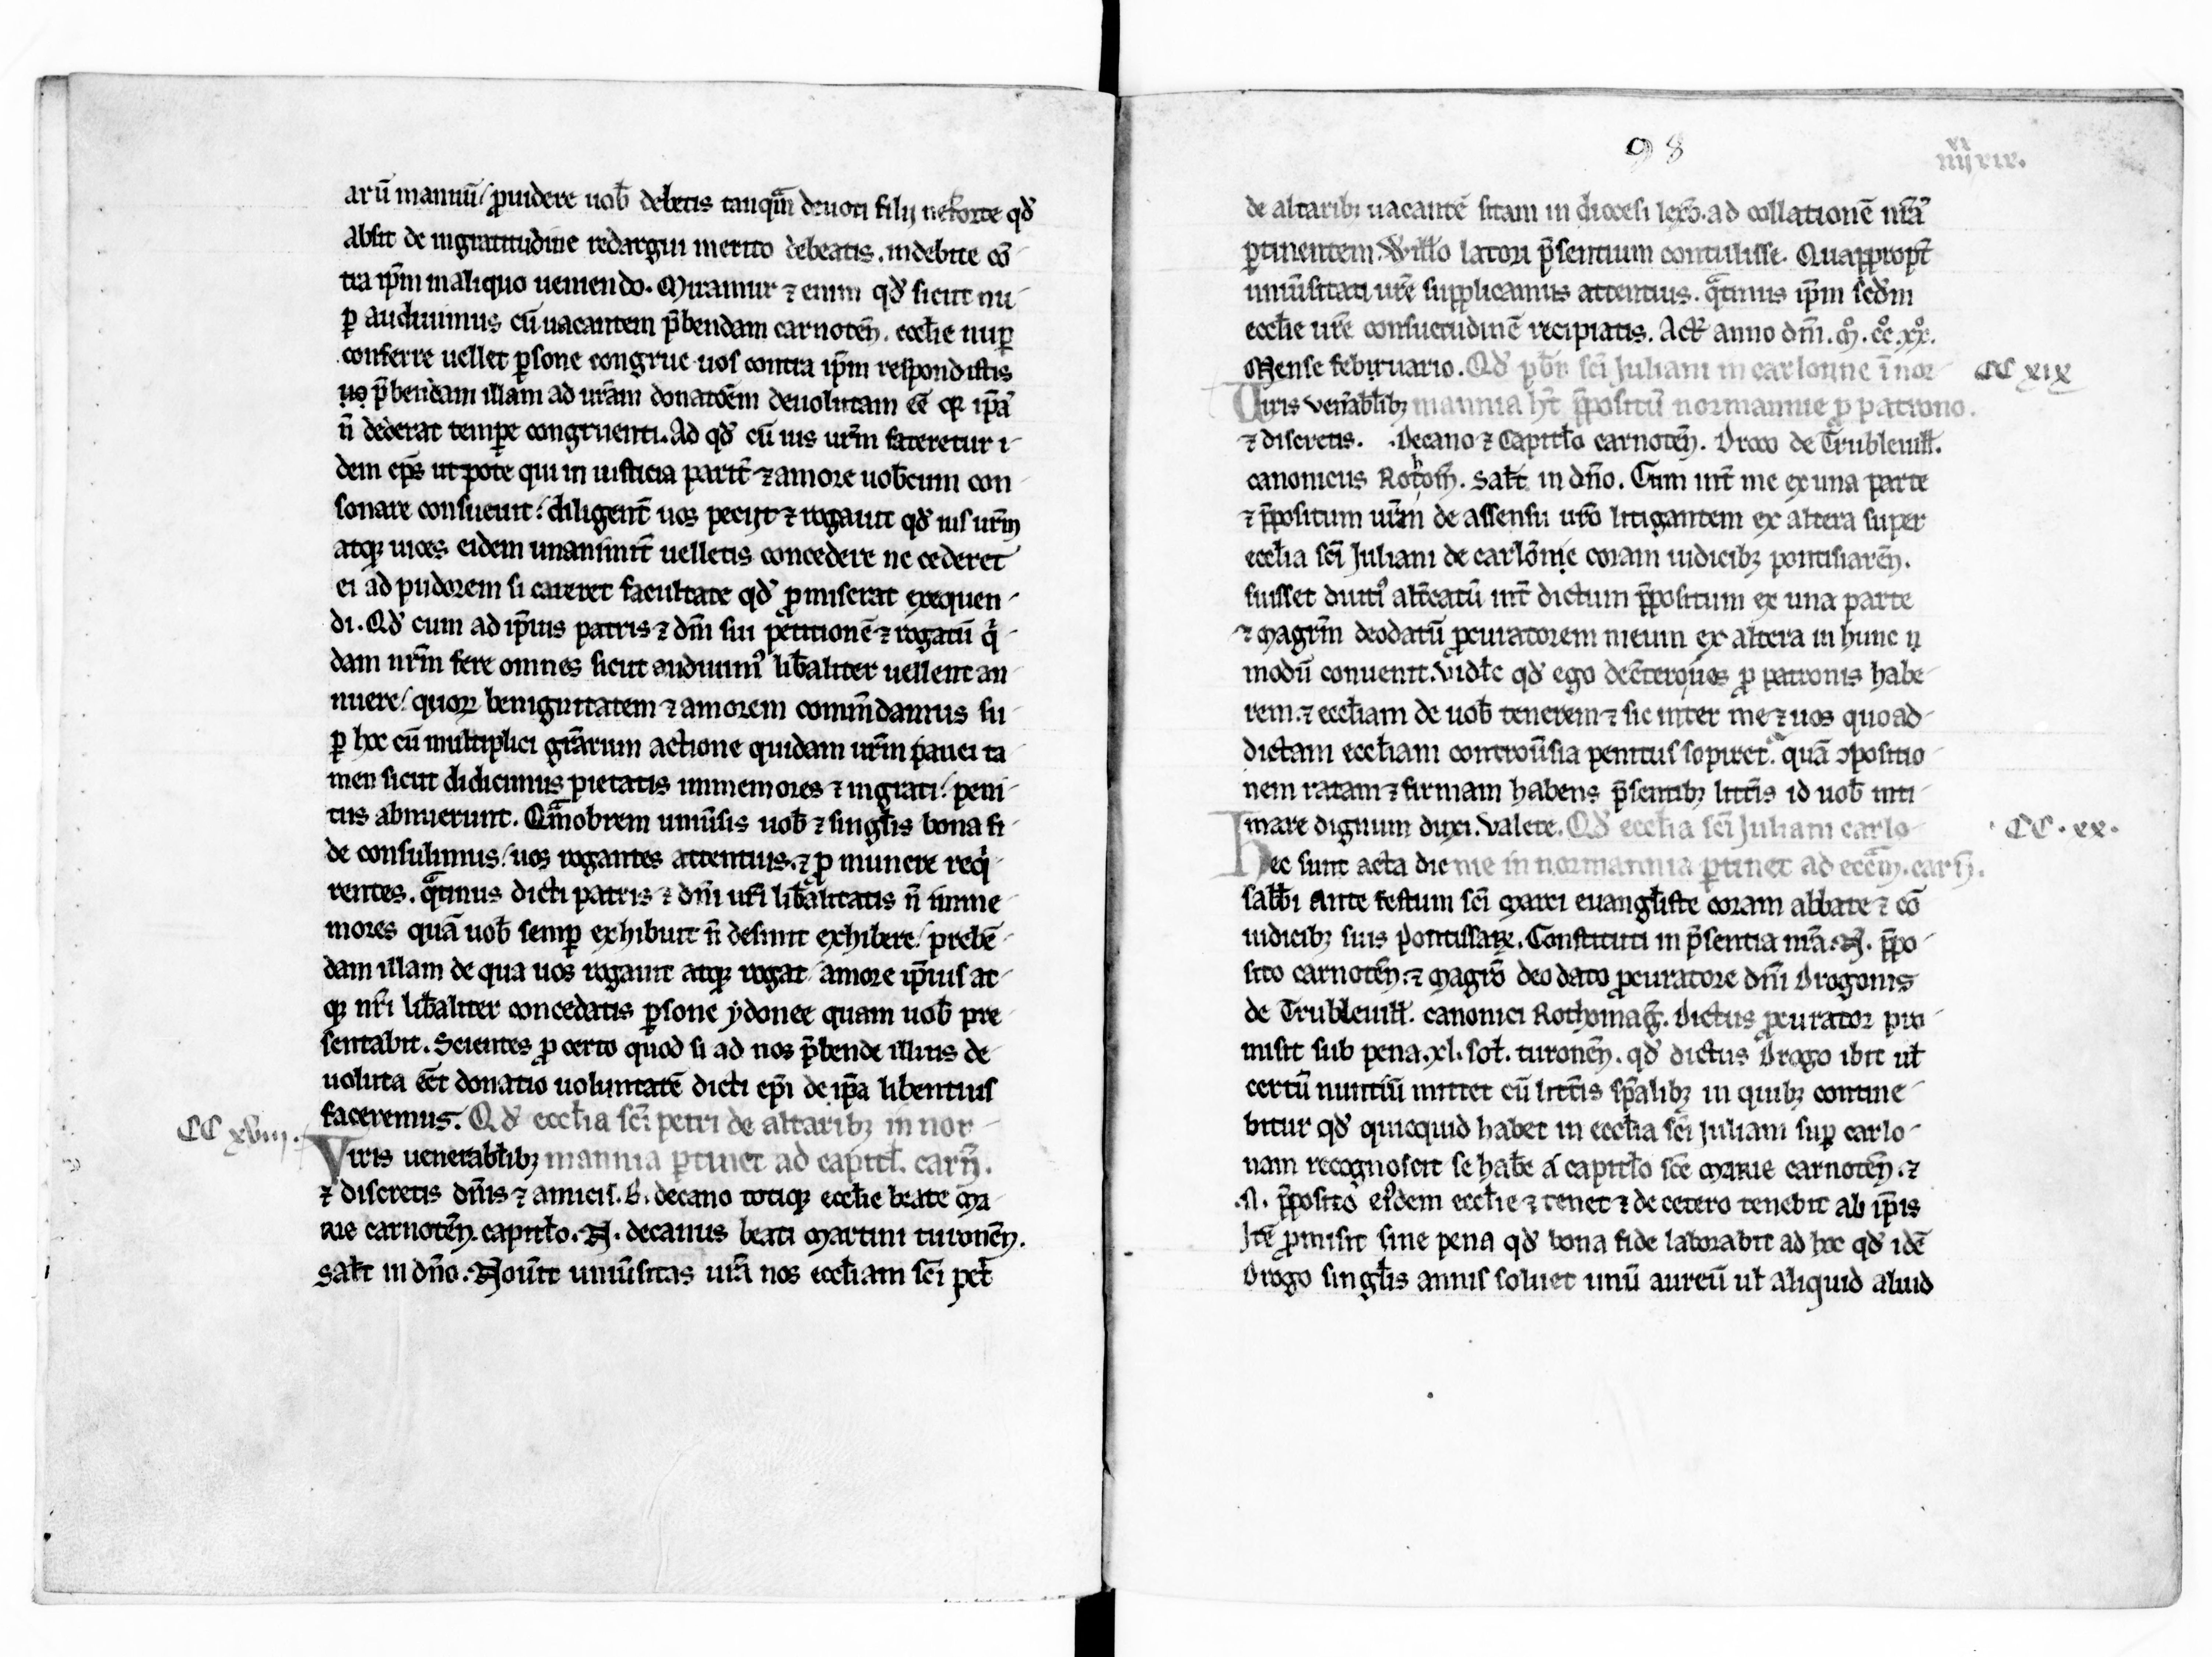 arū manuū/ ꝓuidere uob̄ debetis tanqᷓm deuoti filij ne forte qd̕
absit de ingratitudine redargui merito debeatis. indebite cō
tra ip̄m in aliquo ueniendo. Miramur ⁊ enim qd̕ sicut nu
ꝑ audiuimus cū uacantem p̄bendam carnoteñ. eccłie nuꝑ
conferre uellet ꝑsone congrue uos contra ip̄m respondistis
uo p̄bendam illam ad ur̄am donatōem deuolutam eē qꝛ ip̄ā
n̄ dederat tempe congruenti. Ad qd̕ cū ius ur̄m fateretur i
dem ep̄s ut pote qui in iusticia parit̄ ⁊ amore uob̄cum con
sonare consueuit: diligent̄ uos peciit ⁊ rogauit qd̕ ius ur̄m
atqꝫ uices eidem unanimit̄ uelletis concedere ne cederet
ei ad pudorem si careret facultate qd̕ ꝓmiserat exequen
di. Qd̕ cum ad ip̄ius patris ⁊ dn̄i sui petitionē ⁊ rogatū qͥ
dam ur̄m fere omnes sicut audiuimꝰ lib̄aliter uellent an
nuere/ quoꝝ benignitatem ⁊ amorem comm̄damus su
ꝑ hoc cū multiplici gr̄arum actione quidam ur̄m pauci ta
men sicut didicimus pietatis immemores ⁊ ingrati/ peni
tus abnuerunt. Qᷓmobrem uniūsis uob̄ ⁊ singłis bona fi
de consulimus/ uos rogantes attentius. ⁊ ꝓ munere reqͥ
rentes. qᷓtinus dicti patris ⁊ dn̄i ur̄i lib̄alitatis n̄ imme
mores quā uob̄ semꝑ exhibuit n̄ desinit exhibere/ prebē
dam illam de qua uos rogauit atqꝫ rogat/ amore ip̄ius at
qꝫ nr̄i lib̄aliter concedatis ꝑsone ydonee quam uob̄ pre
sentabit. Scientes ꝓ certo quod si ad nos p̄bende illius de
uoluta eēt donatio uoluntatē dicti ep̄i de ip̄a libentius
faceremus. Qd̕ eccłia sc̄i petri de altaribꝫ in nor
CC xviij.
Viris uenerabłibꝫ mannia ꝑtinet ad capitł. carñ.
⁊ discretis dn̄is ⁊ amicis. B. decano totiqꝫ eccłie beate ma
rie carnoteñ. capitło. N. decanus beati martini turoneñ.
Sałt in dn̄o. Nou̅it uniūsitas ur̄a nos eccłiam sc̄i pet̄
98
de altaribꝫ uacantē sitam in diocesi lexō. ad collationē nr̄ā
ꝑtinentem. Wiłło latori p̄sentium contulisse. Quappropt̄
uniūsitati ur̄e supplicamus attentius. qᷓtinus ip̄m scd̄m
eccłie ur̄e consuetudinē recipiatis. Act̄ anno dn̄i. mͦ. ccͦ. xxͦ.
Mense februario. Qd̕ pb̄r sc̄i Juliani in carlonne ī nor
CC xix
Viris uen̄abłibꝫ mannia h̄t p̄positū normannie ꝓ patrono.
⁊ discretis. Decano ⁊ Capitło carnoteñ. Droco de Trubleuilł.
canonicus Rothoñ. Sałt in dn̄o. Cum int̄ me ex una parte
⁊ p̄positum ur̄m de assensu ur̄o litigantem ex altera super
eccłia sc̄i Juliani de carlōnie coram iudicibꝫ pontisiareñ.
fuisset diutiꝰ alt̄catū int̄ dictum p̄positum ex una parte
⁊ magr̄m deodatū ꝓcuratorem meum ex altera in hunc
modū conuenit. Vidłc qd̕ ego dec̄tero uos ꝓ patronis habe
rem. ⁊ eccłiam de uob̄ tenerem ⁊ sic inter me ⁊ uos quo ad
dictam eccłiam controu̅sia penitus sopiret᷑. quā ꝯpositio
nem ratam ⁊ firmam habens p̄sentibꝫ litt̄is id uob̄ inti
mare dignum duxi. Valete. Qd̕ eccłia sc̄i Juliani carlo
CC. xx.
Hec sunt acta die nie in normannia ꝑtinet ad ecc̄am. carñ.
sabb̄i ante festum sc̄i marci euangłiste coram abbate ⁊ cō
iudicibꝫ suis pontissaꝝ. Constituti in p̄sentia nr̄a. N. p̄po
sito carnoteñ. ⁊ magr̄o deodato ꝓcuratore dn̄i Drogonis
de Trubleuilł. canonici Rothomag̅. Dictus ꝓcurator pro
misit sub pena. xl. soł. turoneñ. qd̕ dictus Drogo ibit uł
certū nuntiū mittet cū litt̄is sp̄alibꝫ in quibꝫ contine
bitur qd̕ quicquid habet in eccłia sc̄i Juliani suꝑ carlo
nam recognoscit se hab̄e a capitło sc̄e marie carnoteñ. ⁊
.N. p̄posito eiꝰdem eccłie ⁊ tenet ⁊ de cetero tenebit ab ip̄is
Jtē ꝓmisit sine pena qd̕ bona fide laborabit ad hoc qd̕ idē
Drogo singłis annis soluet unū aureū uł aliquid aliud